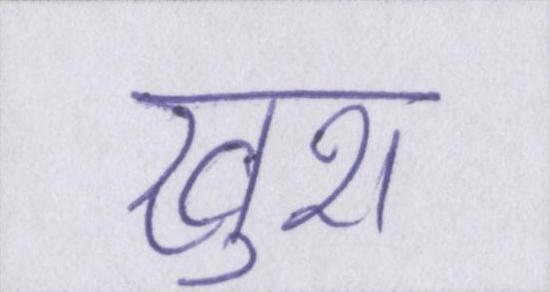 खुश